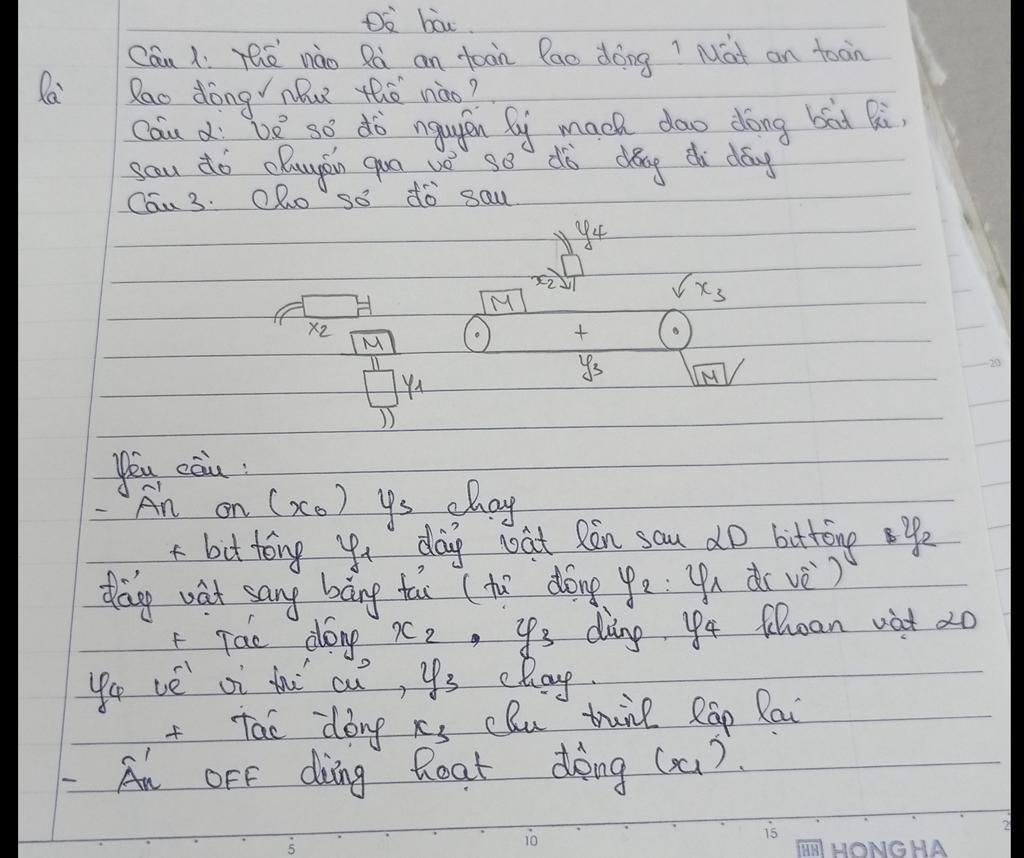 Đề bài.
Câu 1: Thế nào là an toàn lao động? Mất an toàn
là lao động như thế nào?
Câu 2: Vẽ sơ đồ nguyên lý mạch dao động bất kì,
sau đó chuyển qua vẽ sơ đồ dạng đi dây
Câu 3: Cho sơ đồ sau
y4
x2
x3
M
x2
M
y3
M
y1
Yêu cầu:
- Ấn on (x0) y3 chạy
+ bit tông y1 đẩy vật lên sau 2D bittông y2
đẩy vật sang băng tải (tự động y2: y1 đi về)
+ Tác động x2, y3 dừng, y4 khoan vật 2D
y4 về vị trí củ, y3 chạy.
+ Tác động x3 chu trình lập lại
- Ấn OFF dừng hoạt động (x1).
20
5
10
15
HH HONG HA